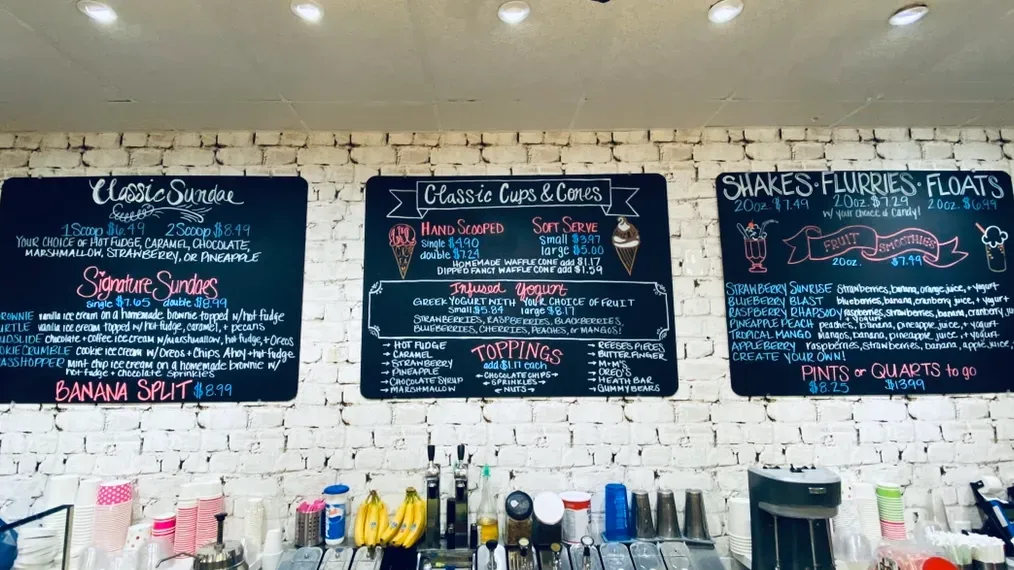 Classic Sundae
1 Scoop $6.49 2 Scoop $8.49
YOUR CHOICE OF HOT FUDGE, CARAMEL, CHOCOLATE,
MARSHMALLOW, STRAWBERRY, OR PINEAPPLE
Signature Sundaes
single $7.65 double $8.99
ROWNIE vanilla ice cream on a homemade brownie topped w/hot fudge
URTLE vanilla ice cream topped w/hot fudge, caramel, + pecans
UDSLIDE chocolate + coffee ice cream w/marshmallow, hot fudge, + Oreos
OKIE CRUMBLE cookie ice cream w/ Oreos + Chips Ahoy + hot fudge
ASSHOPPER mint chip ice cream on a homemade brownie w/
hot fudge + chocolate sprinkles
BANANA SPLIT $8.99
CLASSIC CUPS & CONES
HAND SCOOPED
single $4.90
double $7.24
SOFT SERVE
small $3.97
large $5.00
HOMEMADE WAFFLE CONE add $1.17
DIPPED FANCY WAFFLE CONE add $1.59
Infused Yogurt
GREEK YOGURT WITH YOUR CHOICE OF FRUIT
small $5.84 large $8.17
STRAWBERRIES, RASPBERRIES, BLACKBERRIES,
BLUEBERRIES, CHERRIES, PEACHES, or MANGOS!
→ HOT FUDGE
→ CARAMEL
→ STRAWBERRY
→ PINEAPPLE
→ CHOCOLATE SYRUP
→ MARSHMALLOW
TOPPINGS
add $1.11 each
CHOCOLATE CHIPS
SPRINKLES
NUTS
REESES PIECES
BUTTERFINGER
M+M'S
OREO'S
HEATH BAR
GUMMY BEARS
SHAKES · FLURRIES · FLOATS
20oz. $7.49 20oz. $7.29 20oz. $6.99
w/ your choice of Candy!
FRUIT SMOOTHIES
20oz. $7.49
STRAWBERRY SUNRISE strawberries, banana, orange juice, + yogurt
BLUEBERRY BLAST blueberries, banana, cranberry juice, + yogurt
RASPBERRY RHAPSODY raspberries, strawberries, banana, cranberry ju
+ yogurt
PINEAPPLE PEACH peaches, banana, pineapple juice, + yogurt
TROPICAL MANGO mangos, banana, pineapple juice, + yogurt
APPLEBERRY raspberries, strawberries, banana, apple juice,
CREATE YOUR OWN!
PINTS or QUARTS to go
$8.25 $13.99